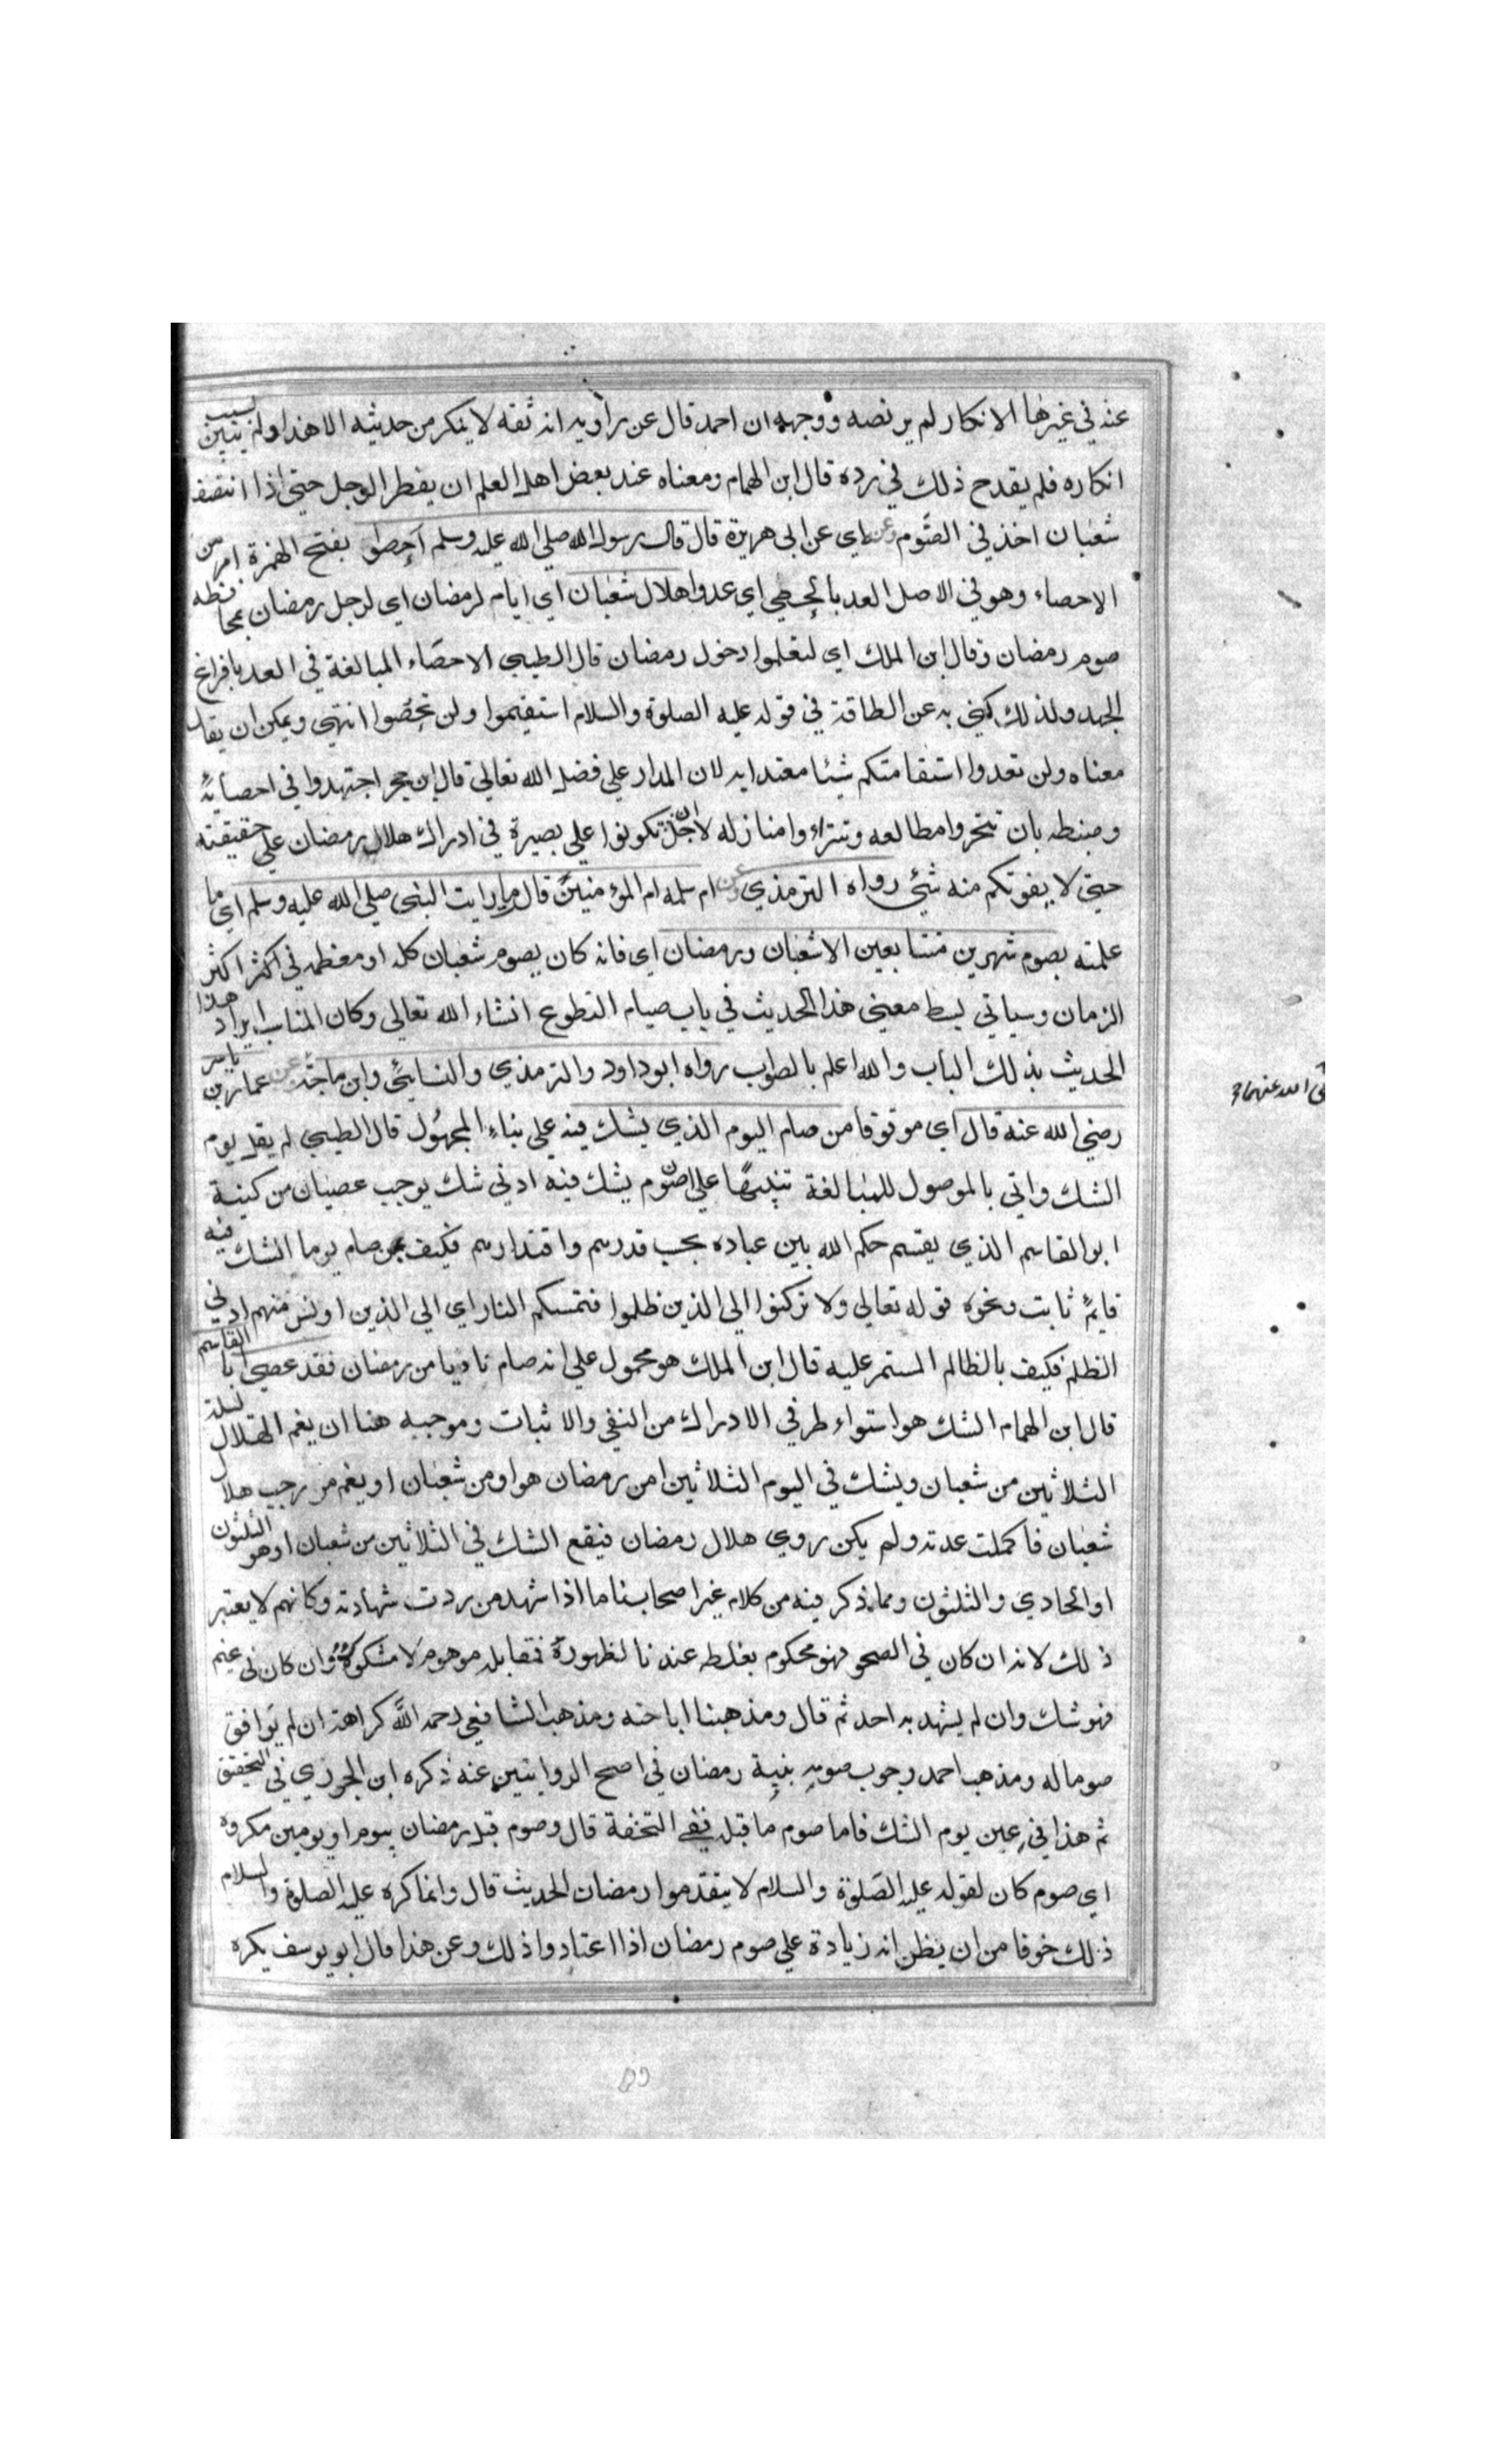 عنه في غيرها الانكار لم يرتضه ووجهه ان احمد قال عن راويه انه ثقه لا ينكر من حديثه الا هذا ولم يتبين سبب
انكاره فلم يقدح ذلك في رده قال ابن الهمام ومعناه عند بعض اهل العلم ان يفطر الرجل حتي اذا انتصف
شعبان اخذ في الصوم وعنه اي عن ابي هريرة قال قال رسول الله صلي الله عليه وسلم احصوا بفتح الهمزة امر من
الاحصاء وهو في الاصل العد بالحصي اي عدوا هلال شعبان اي ايام لرمضان اي لاجل رمضان محافظه
صوم رمضان وقال ابن الملك اي لتعلموا دخول رمضان قال الطيبي الاحصاء المبالغة في العد بافراغ
الجهد ولذلك كني به عن الطاقة في قوله عليه الصلوة والسلام استقيموا ولن تحصوا انتهي ويمكن ان يقال
معناه ولن تعدوا استقامتكم شيئا معتدا به لان المدار علي فضل الله تعالي قال ابن حجر اجتهدوا في احصائه
وضبطه بان تتحروا مطالعه وتتراءوا منازله لاجل ان تكونوا علي بصيرة في ادراك هلال رمضان علي حقيقته
حتي لا يفوتكم منه شئي رواه الترمذي وعن ام سلمه ام المؤمنين قال ما رايت النبي صلي الله عليه وسلم اي ما
علمته يصوم شهرين متتابعين الا شعبان ورمضان اي فانه كان يصوم شعبان كله او معظمه في اكثر اكثر
الزمان وسياتي بسط معني هذا الحديث في باب صيام التطوع انشاء الله تعالي وكان المناسب ايراد هذا
الحديث بذلك الباب والله اعلم بالصواب رواه ابو داود والترمذي والنسائي وابن ماجه وعن عمار بن ياسر
رضي الله عنه قال اي موقوفا من صام اليوم الذي يشك فيه علي بناء المجهول قال الطيبي لم يقل يوم
الشك واتي بالموصول للمبالغة تنبيها علي ان صوم يشك فيه ادني شك يوجب عصيان من كنية
ابو القاسم الذي يقسم حكم الله بين عباده بحسب قدرهم واقتدارهم فكيف بمن صام يوما الشك فيه
قايم ثابت ونحوه قوله تعالي ولا تركنوا الي الذين ظلموا فتمسكم النار اي الي الذين اونس منهم ادني
الظلم فكيف بالظالم المستمر عليه قال ابن الملك هو محمول علي انه صام ناويا من رمضان فقد عصي ابا القاسم
قال ابن الهمام الشك هو استواء طرفي الادراك من النفي والاثبات وموجبه هنا ان يغم الهلال ليلة
الثلاثين من شعبان ويشك في اليوم الثلاثين امن رمضان هو او من شعبان او يغم من رجب هلال
شعبان فاكملت عدته ولم يكن روي هلال رمضان فيقع الشك في الثلاثين من شعبان اوهو الثلثون
او الحادي والثلثون ومما ذكر فيه من كلام غير اصحابنا ما اذا شهد من ردت شهادته وكانهم لا يعتبر
ذلك لانه ان كان في الصحو فهو محكوم بغلطه عندنا لظهوره فمقابله موهوم لا مشكوك وان كان في غيم
فهو شك وان لم يشهد به احد ثم قال ومذهبنا اباحته ومذهب الشافعي رحمه الله كراهته ان لم يوافق
صوما له ومذهب احمد وجوب صومه بنية رمضان في اصح الروايتين عنه ذكره ابن الجوزي في التحقيق
ثم هذا في عين يوم الشك فاما صوم ما قبله ففي التحفة قال وصوم قبل رمضان بيوم او يومين مكروه
اي صوم كان لقوله عليه الصلوة والسلام لا يتقدموا رمضان الحديث قال وانما كره عليه الصلوة والسلام
ذلك خوفا من ان يظن انه زيادة علي صوم رمضان اذا اعتادوا ذلك وعن هذا قال ابو يوسف يكره